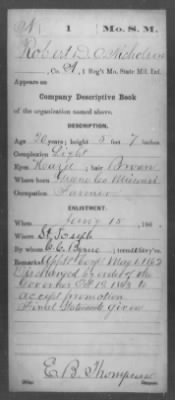 N 1 Mo. S. M.
Robert D. C. Nicholson
Co. A, 1 Reg't Mo. State Mil. Inf.
Appears on
Company Descriptive Book
of the organization named above.
DESCRIPTION.
Age 20 years; height 5 feet 7 inches.
Complexion Light
Eyes ; hair Brown
Where born Missouri
Occupation Farmer
ENLISTMENT.
When 15, 186
Where St Joseph
By whom C. C. Byrne; term years.
Remarks: Appt Corpl May 1, 1862
Discharged by order of the
Governor Oct 13 1862 to
accept promotion
Final Statements given
E. B. Thompson